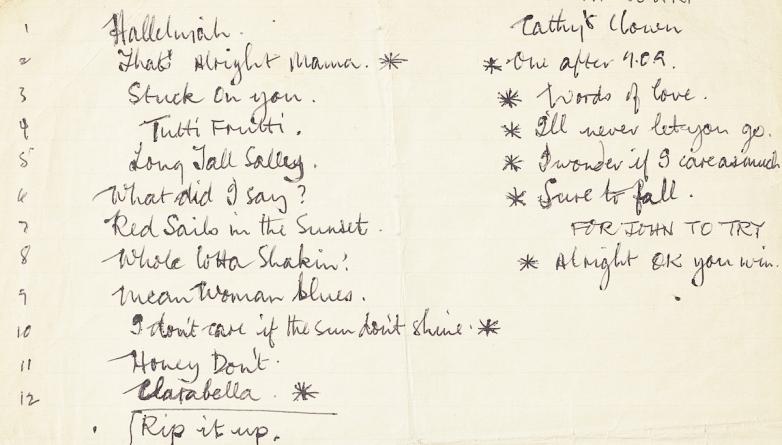 1 Hallelujah.
2 That's Alright Mama. *
3 Stuck On you.
4 Tutti Fruitti.
5 Long Tall Salley.
6 What did I say?
7 Red Sails in the Sunset.
8 Whole Lotta Shakin'.
9 Mean Woman blues.
10 I don't care if the sun don't shine. *
11 Honey Don't.
12 Clarabella. *
Rip it up.
Cathy's Clown
* One after 9.09.
* Words of love.
* I'll never let you go.
* I wonder if I care as much
* Sure to fall.
FOR JOHN TO TRY
* Alright OK you win.